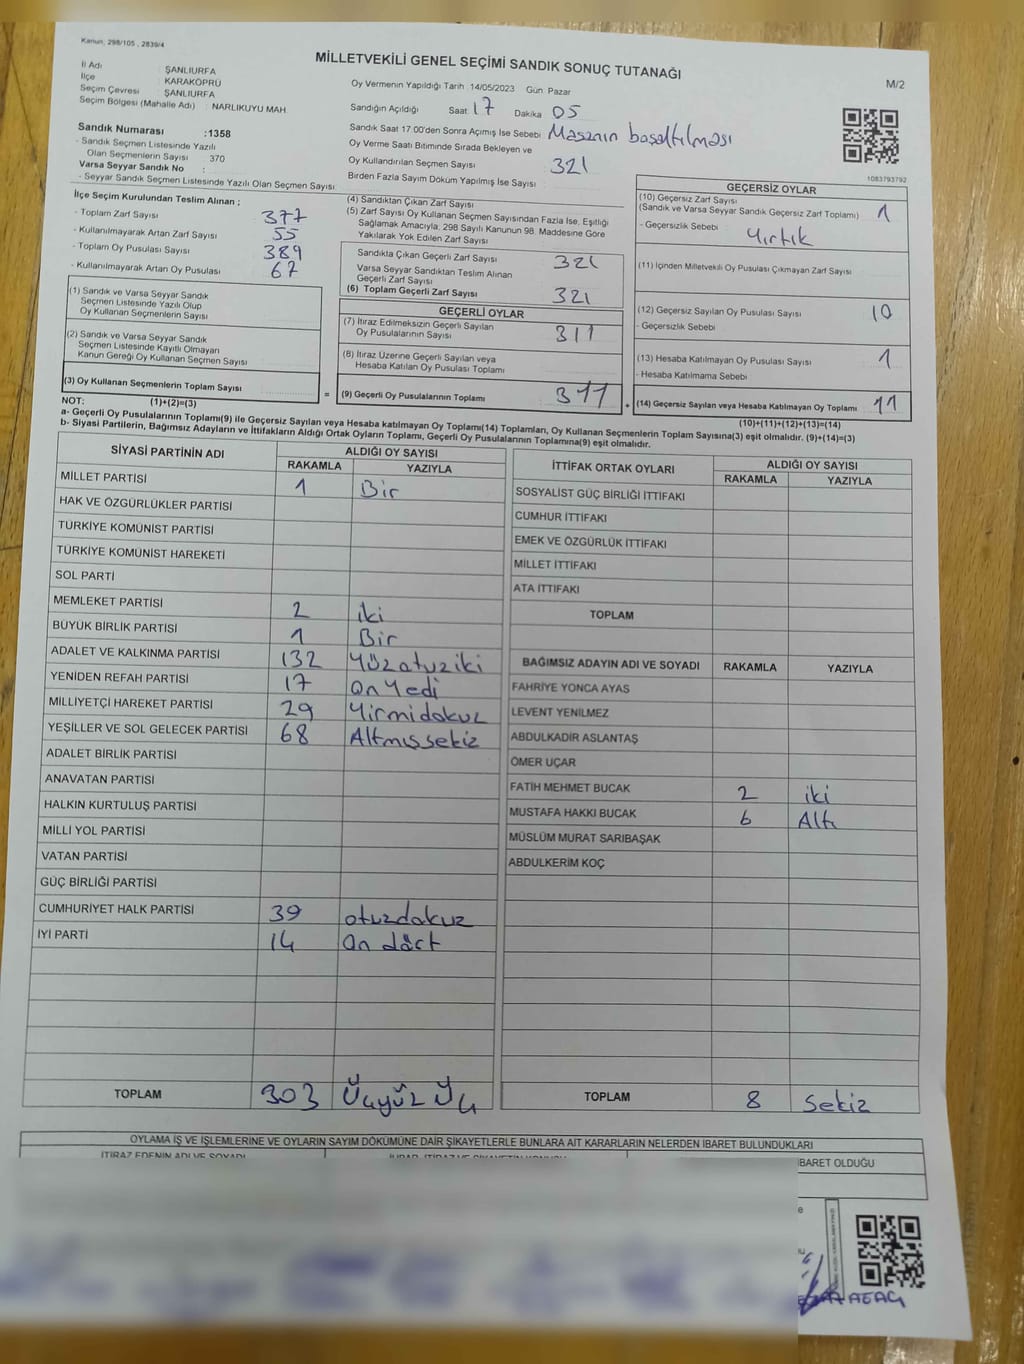 Kanun, 298/105 , 2839/4
MİLLETVEKİLİ GENEL SEÇİMİ SANDIK SONUÇ TUTANAĞI
M/2
İl Adı : ŞANLIURFA
İlçe : KARAKÖPRÜ
Seçim Çevresi : ŞANLIURFA
Seçim Bölgesi (Mahalle Adı) : NARLIKUYU MAH.
Sandık Numarası :1358
- Sandık Seçmen Listesinde Yazılı
Olan Seçmenlerin Sayısı : 370
Varsa Seyyar Sandık No :
- Seyyar Sandık Seçmen Listesinde Yazılı Olan Seçmen Sayısı:
Oy Vermenin Yapıldığı Tarih :14/05/2023 Gün: Pazar
Sandığın Açıldığı Saat: 17 Dakika: 05
Sandık Saat 17.00'den Sonra Açımış İse Sebebi: Masanın boşaltılması
Oy Verme Saati Bitiminde Sırada Bekleyen ve
Oy Kullandırılan Seçmen Sayısı : 321
Birden Fazla Sayım Döküm Yapılmış İse Sayısı :
1083793792
İlçe Seçim Kurulundan Teslim Alınan ;
- Toplam Zarf Sayısı : 377
- Kullanılmayarak Artan Zarf Sayısı : 55
- Toplam Oy Pusulası Sayısı : 389
- Kullanılmayarak Artan Oy Pusulası : 67
(1) Sandık ve Varsa Seyyar Sandık
Seçmen Listesinde Yazılı Olup
Oy Kullanan Seçmenlerin Sayısı
(2) Sandık ve Varsa Seyyar Sandık
Seçmen Listesinde Kayıtlı Olmayan
Kanun Gereği Oy Kullanan Seçmen Sayısı
(3) Oy Kullanan Seçmenlerin Toplam Sayısı
(4) Sandıktan Çıkan Zarf Sayısı :
(5) Zarf Sayısı Oy Kullanan Seçmen Sayısından Fazla İse, Eşitliği
Sağlamak Amacıyla; 298 Sayılı Kanunun 98. Maddesine Göre
Yakılarak Yok Edilen Zarf Sayısı :
Sandıkta Çıkan Geçerli Zarf Sayısı : 321
Varsa Seyyar Sandıktan Teslim Alınan
Geçerli Zarf Sayısı :
(6) Toplam Geçerli Zarf Sayısı : 321
GEÇERLİ OYLAR
(7) İtiraz Edilmeksizin Geçerli Sayılan
Oy Pusulalarının Sayısı : 311
(8) İtiraz Üzerine Geçerli Sayılan veya
Hesaba Katılan Oy Pusulası Toplamı :
= (9) Geçerli Oy Pusulalarının Toplamı : 311
GEÇERSİZ OYLAR
(10) Geçersiz Zarf Sayısı
(Sandık ve Varsa Seyyar Sandık Geçersiz Zarf Toplamı) : 1
- Geçersizlik Sebebi : Yırtık
(11) İçinden Milletvekili Oy Pusulası Çıkmayan Zarf Sayısı :
(12) Geçersiz Sayılan Oy Pusulası Sayısı : 10
- Geçersizlik Sebebi :
(13) Hesaba Katılmayan Oy Pusulası Sayısı : 1
- Hesaba Katılmama Sebebi :
+ (14) Geçersiz Sayılan veya Hesaba Katılmayan Oy Toplamı : 11
NOT: (1)+(2)=(3)
(10)+(11)+(12)+(13)=(14)
a- Geçerli Oy Pusulalarının Toplamı(9) ile Geçersiz Sayılan veya Hesaba katılmayan Oy Toplamı(14) Toplamları, Oy Kullanan Seçmenlerin Toplam Sayısına(3) eşit olmalıdır. (9)+(14)=(3)
b- Siyasi Partilerin, Bağımsız Adayların ve İttifakların Aldığı Ortak Oyların Toplamı, Geçerli Oy Pusulalarının Toplamına(9) eşit olmalıdır.
SİYASİ PARTİNİN ADI ALDIĞI OY SAYISI
RAKAMLA YAZIYLA
MİLLET PARTİSİ 1 Bir
HAK VE ÖZGÜRLÜKLER PARTİSİ
TÜRKİYE KOMÜNİST PARTİSİ
TÜRKİYE KOMÜNİST HAREKETİ
SOL PARTİ
MEMLEKET PARTİSİ 2 iki
BÜYÜK BİRLİK PARTİSİ 1 Bir
ADALET VE KALKINMA PARTİSİ 132 Yüzotuziki
YENİDEN REFAH PARTİSİ 17 on yedi
MİLLİYETÇİ HAREKET PARTİSİ 29 Yirmidokuz
YEŞİLLER VE SOL GELECEK PARTİSİ 68 Altmışsekiz
ADALET BİRLİK PARTİSİ
ANAVATAN PARTİSİ
HALKIN KURTULUŞ PARTİSİ
MİLLİ YOL PARTİSİ
VATAN PARTİSİ
GÜÇ BİRLİĞİ PARTİSİ
CUMHURİYET HALK PARTİSİ 39 otuzdokuz
İYİ PARTİ 14 on dört
TOPLAM 303 Üçyüz Üç
İTTİFAK ORTAK OYLARI ALDIĞI OY SAYISI
RAKAMLA YAZIYLA
SOSYALİST GÜÇ BİRLİĞİ İTTİFAKI
CUMHUR İTTİFAKI
EMEK VE ÖZGÜRLÜK İTTİFAKI
MİLLET İTTİFAKI
ATA İTTİFAKI
TOPLAM
BAĞIMSIZ ADAYIN ADI VE SOYADI RAKAMLA YAZIYLA
FAHRİYE YONCA AYAS
LEVENT YENİLMEZ
ABDULKADİR ASLANTAŞ
ÖMER UÇAR
FATİH MEHMET BUCAK 2 iki
MUSTAFA HAKKI BUCAK 6 Altı
MÜSLÜM MURAT SARIBAŞAK
ABDULKERİM KOÇ
TOPLAM 8 Sekiz
OYLAMA İŞ VE İŞLEMLERİNE VE OYLARIN SAYIM DÖKÜMÜNE DAİR ŞİKAYETLERLE BUNLARA AİT KARARLARIN NELERDEN İBARET BULUNDUKLARI
İTİRAZ EDENİN ADI VE SOYADI
BARET OLDUĞU